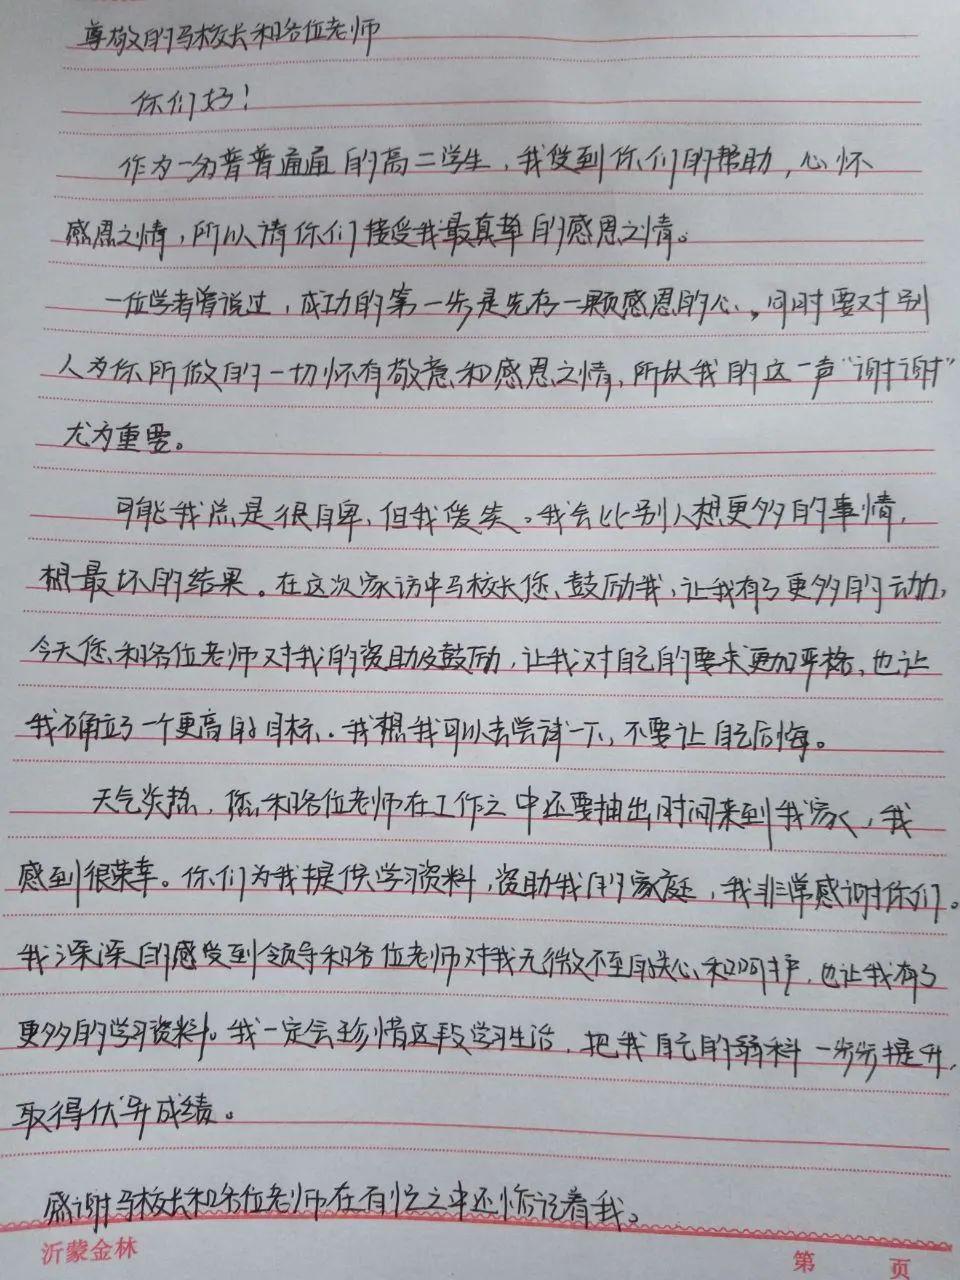 尊敬的马校长和各位老师
你们好！
作为一分普普通通的高二学生，我受到你们的帮助，心怀
感恩之情，所以请你们接受我最真挚的感恩之情。
一位学者曾说过，成功的第一步是先存一颗感恩的心，同时要对别
人为你所做的一切怀有敬意和感恩之情，所以我的这一声“谢谢”
尤为重要。
可能我总是很自卑，但我丧失。我会比别人想更多的事情，
想最坏的结果。在这次家访中马校长您鼓励我，让我有了更多的动力，
今天您和各位老师对我的资助及鼓励，让我对自己的要求更加严格，也让
我确立了一个更高的目标。我想我可以去尝试一下，不要让自己后悔。
天气炎热，您和各位老师在工作之中还要抽出时间来到我家，我
感到很荣幸。你们为我提供学习资料，资助我的家庭，我非常感谢你们。
我深深的感受到领导和各位老师对我无微不至的关心和呵护，也让我有了
更多的学习资料。我一定会珍惜这段学习生活，把我自己的弱科一步步提升，
取得优异成绩。
感谢马校长和各位老师在百忙之中还惦记着我。
沂蒙金林
第 页